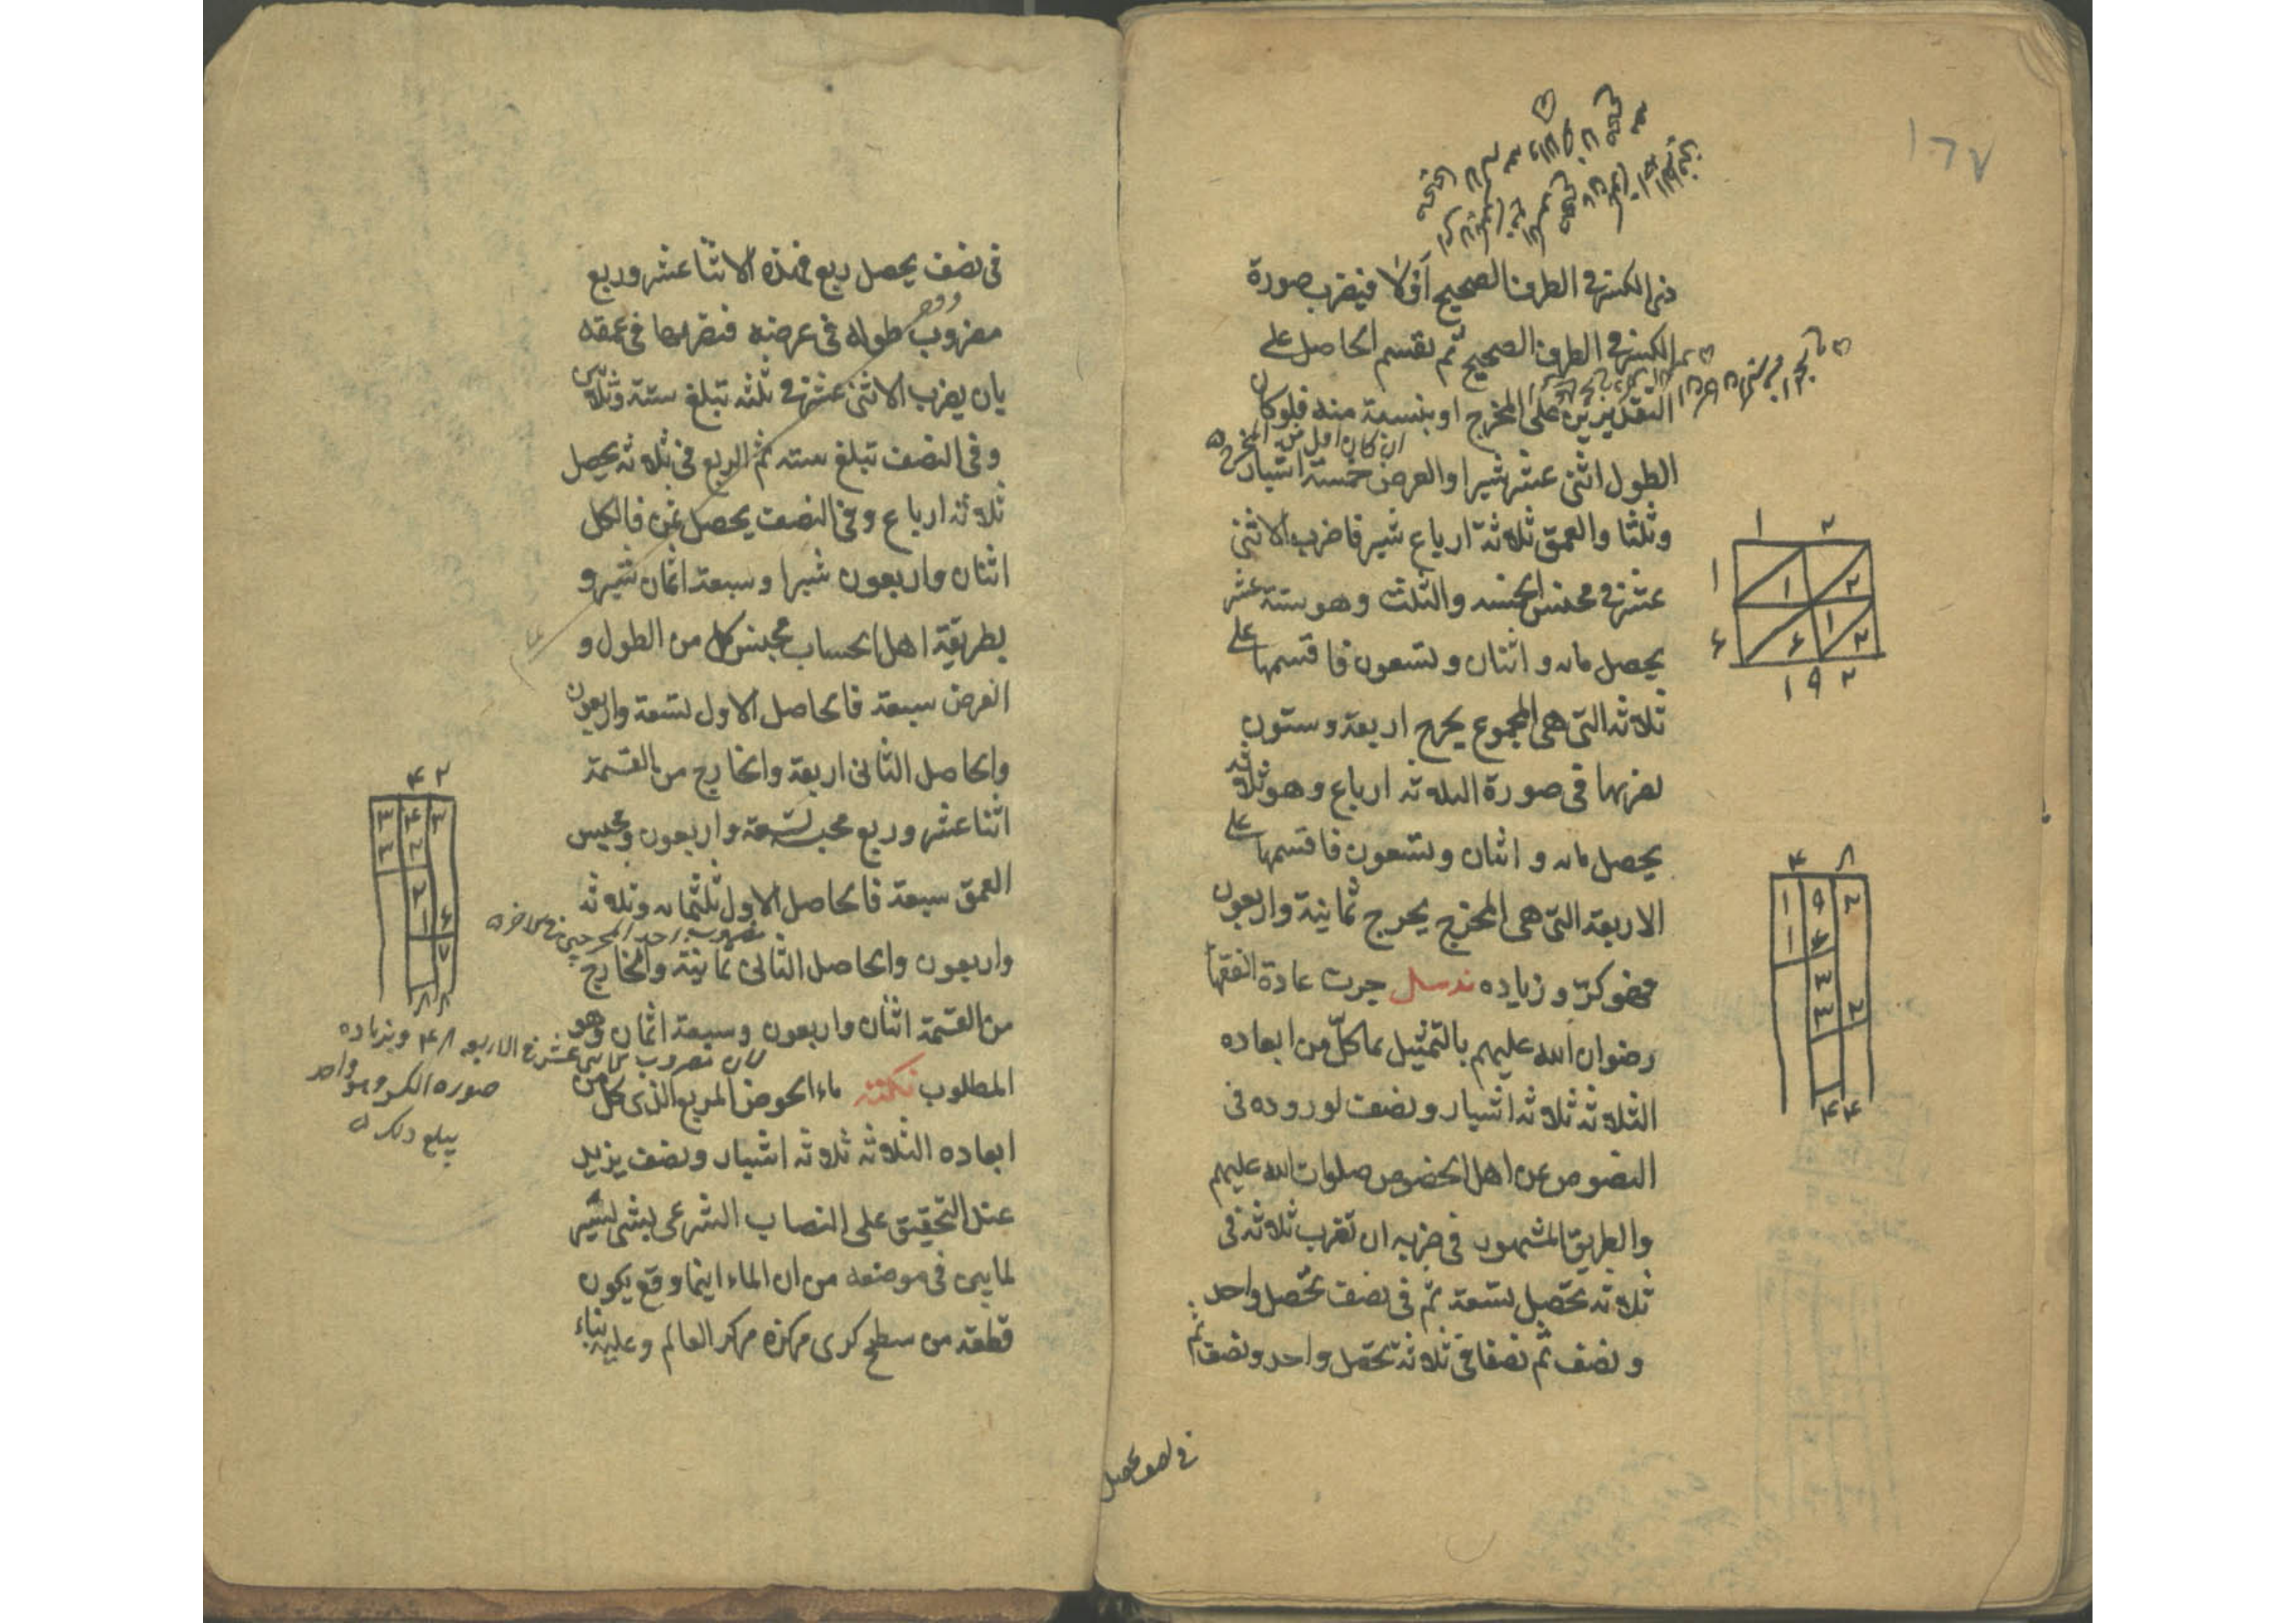 ١٦٧
ذى الكسر فى الطرف الصحيح أوّلا فيضرب صورة
الكسر فى الطرف الصحيح ثم يقسم الحاصل على
التقديرين على المخرج او ينسبه منه فلو كان
ان كان اقل من المخرج
الطول اثنى عشر شبرا والعرض خمسة اشبار
وثلثا والعمق ثلاثة ارباع شبر فاضرب الاثنى
عشر فى مجنس الخمسه والثلث وهو ستة عشر
يحصل مائه و اثنان وتسعون فاقسمها على
ثلاثه التى هى المخرج يخرج اربعة وستون
تضربها فى صورة الثلاثه ارباع وهو ثلاثه
يحصل مائه و اثنان وتسعون فاقسمها على
الاربعة التى هى المخرج يخرج ثمانية واربعون
فهو كرّ و زياده جرت عادة الفقها
رضوان الله عليهم بالتمثيل بما كلّ من ابعاده
الثلاثه ثلاثه اشبار ونصف لوروده فى
النصوص عن اهل الخصوص صلوات الله عليهم
والطريق المشهور فى ضربه ان تضرب ثلاثه فى
ثلاثه تحصل تسعة ثم فى نصف تحصل واحد
و نصف ثم نصفا فى ثلاثة تحصل واحد ونصف ثم
فى نصف يحصل
١ ٢
١ ١ ٢
۶ ۶ ١ ٢
١ ٩ ٢
۴ ٨
١ ٩ ٢
١ ۶
٣
٣ ٢
۴ ۴
فى نصف يحصل ربع فهذه الاثنا عشر وربع
مضروب طوله فى عرضه فنضربها فى عمقه
بان يضرب الاثنى عشر فى ثلثه تبلغ ستة وثلاثين
وفى النصف تبلغ سته ثم الربع فى ثلاثه يحصل
ثلاثه ارباع وفى النصف يحصل ثمن فالكل
اثنان واربعون شبرا وسبعة اثمان شبر و
بطريقة اهل الحساب مجنس كل من الطول و
العرض سبعة فالحاصل الاول تسعة واربعون
والحاصل الثانى اربعة والخارج من القسمة
اثنا عشر وربع مجنسه تسعة واربعون ومجنس
العمق سبعة فالحاصل الاول ثلثمائه وثلاثه
واربعون والحاصل الثانى ثمانية والخارج
من القسمة اثنان واربعون وسبعة اثمان وهو
المطلوب تكملة ماء الحوض المربع الذى كل من
ابعاده الثلاثه ثلاثه اشبار ونصف يزيد
عند التحقيق على النصاب الشرعى بشى يسير
لما بين فى موضعه من ان الماء اينما وقع يكون
قطعة من سطح كرى مركزه مركز العالم وعليه بناء
۴ ٢
٣ ۴ ٣
٣ ٢
٢
١ ۶
٧
٨ ٨
صوره الكسر وهو واحد
يبلغ ذلك